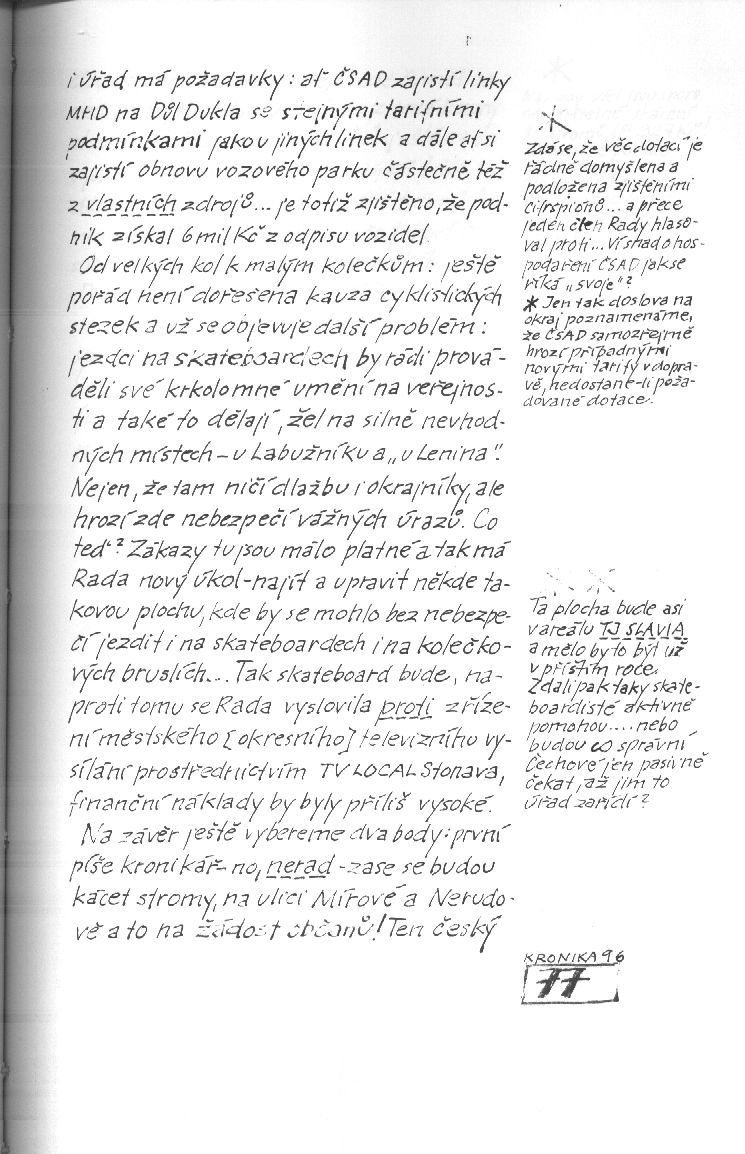 i úřad má požadavky: ať ČSAD zajistí linky
MHD na Důl Dukla se stejnými tarifními
podmínkami jako u jiných linek a dále ať si
zajistí obnovu vozového parku částečně též
z vlastních zdrojů... je totiž zjištěno, že pod-
nik získal 6 mil Kč z odpisu vozidel.
Od velkých kol k malým kolečkům: ještě
pořád není dořešena kauza cyklistických
stezek a už se objevuje další problém:
jezdci na skateboardech by rádi prová-
děli své krkolomné umění na veřejnos-
ti a také to dělají, žel na silně nevhod-
ných místech – u Labužníku a „u Lenina".
Nejen, že tam ničí dlažbu i okrajníky, ale
hrozí zde nebezpečí vážných úrazů. Co
teď? Zákazy tu jsou málo platné a tak má
Rada nový úkol - najít a upravit někde ta-
kovou plochu, kde by se mohlo bez nebezpe-
čí jezdit i na skateboardech i na kolečko-
vých bruslích... Tak skateboard bude, na-
proti tomu se Rada vyslovila proti zříze-
ní městského [okresního] televizního vy-
sílání prostřednictvím TV LOCAL Stonava,
finanční náklady by byly příliš vysoké.
Na závěr ještě vybereme dva body: první
píše kronikář - no, nerad - zase se budou
kácet stromy, na ulici Mírové a Nerudo-
vě a to na žádost občanů! Ten český
Zdá se, že věc dotací je
řádně domyšlena a
podložena zjištěními
čifršpionů... a přece
jeden člen Rady hlaso-
val proti... Ví snad o hos-
podaření ČSAD jak se
říká „svoje"?
* Jen tak doslova na
okraj poznamenáme,
že ČSAD samozřejmě
hrozí případnými
novými tarify v dopra-
vě, nedostane-li poža-
dované dotace.
Ta plocha bude asi
v areálu TJ SLAVIA
a mělo by to být už
v příštím roce.
Zdalipak taky skate-
boardisté aktivně
pomohou.... nebo
budou co správní
Čechové jen pasivně
čekat, až jim to
úřad zařídí?
KRONIKA 96
77